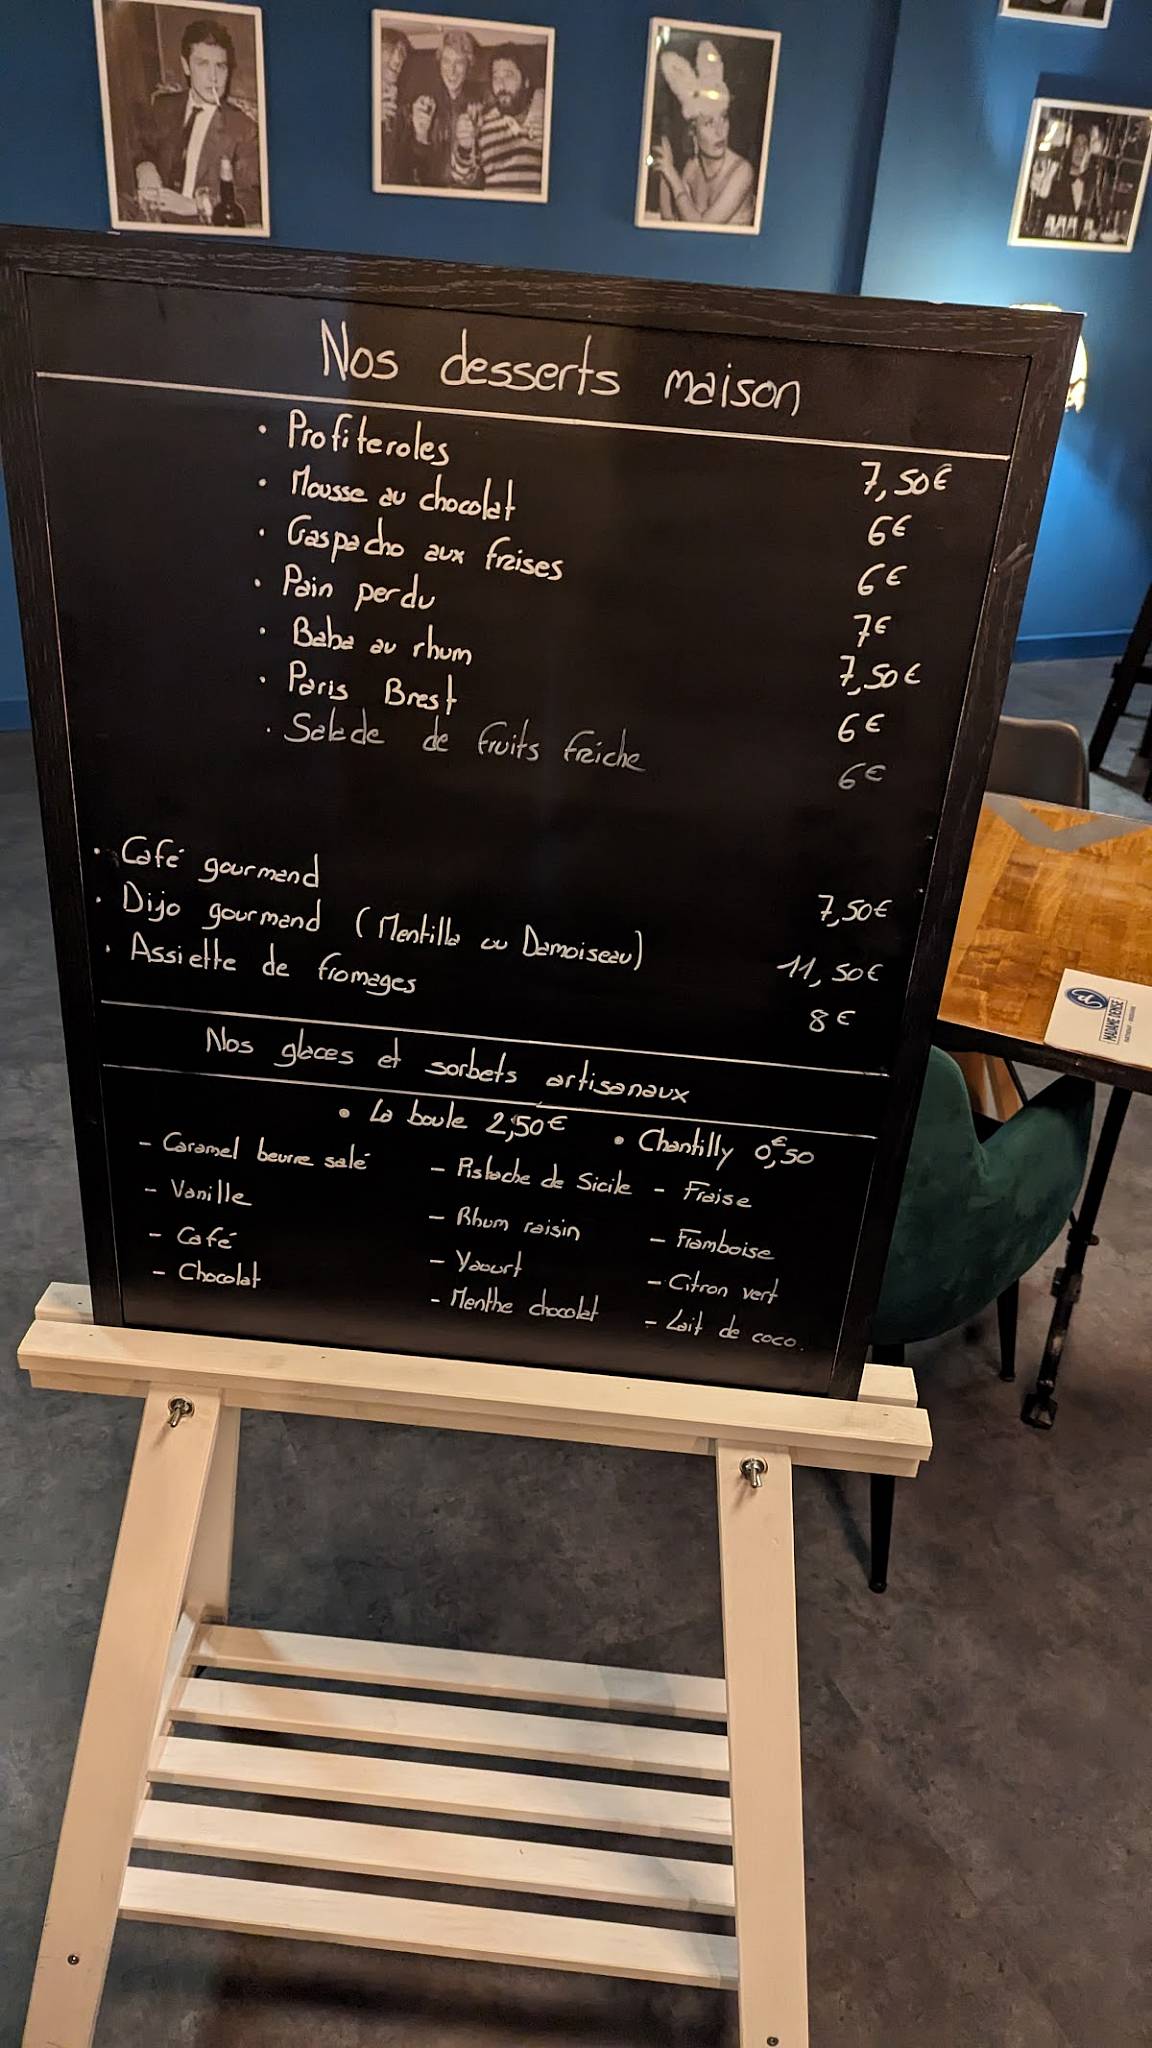 Nos desserts maison
• Profiteroles 7,50€
• Mousse au chocolat 6€
• Gaspacho aux fraises 6€
• Pain perdu 7€
• Baba au rhum 7,50€
• Paris Brest 6€
• Salade de fruits fraîche 6€
• Café gourmand 7,50€
• Dijo gourmand (Mentilla ou Damoiseau) 11,50€
• Assiette de fromages 8€
Nos glaces et sorbets artisanaux
• La boule 2,50€ • Chantilly 0,€50
- Caramel beurre salé - Pistache de Sicile - Fraise
- Vanille - Rhum raisin - Framboise
- Café - Yaourt - Citron vert
- Chocolat - Menthe chocolat - Lait de coco.
MADAME DENISE